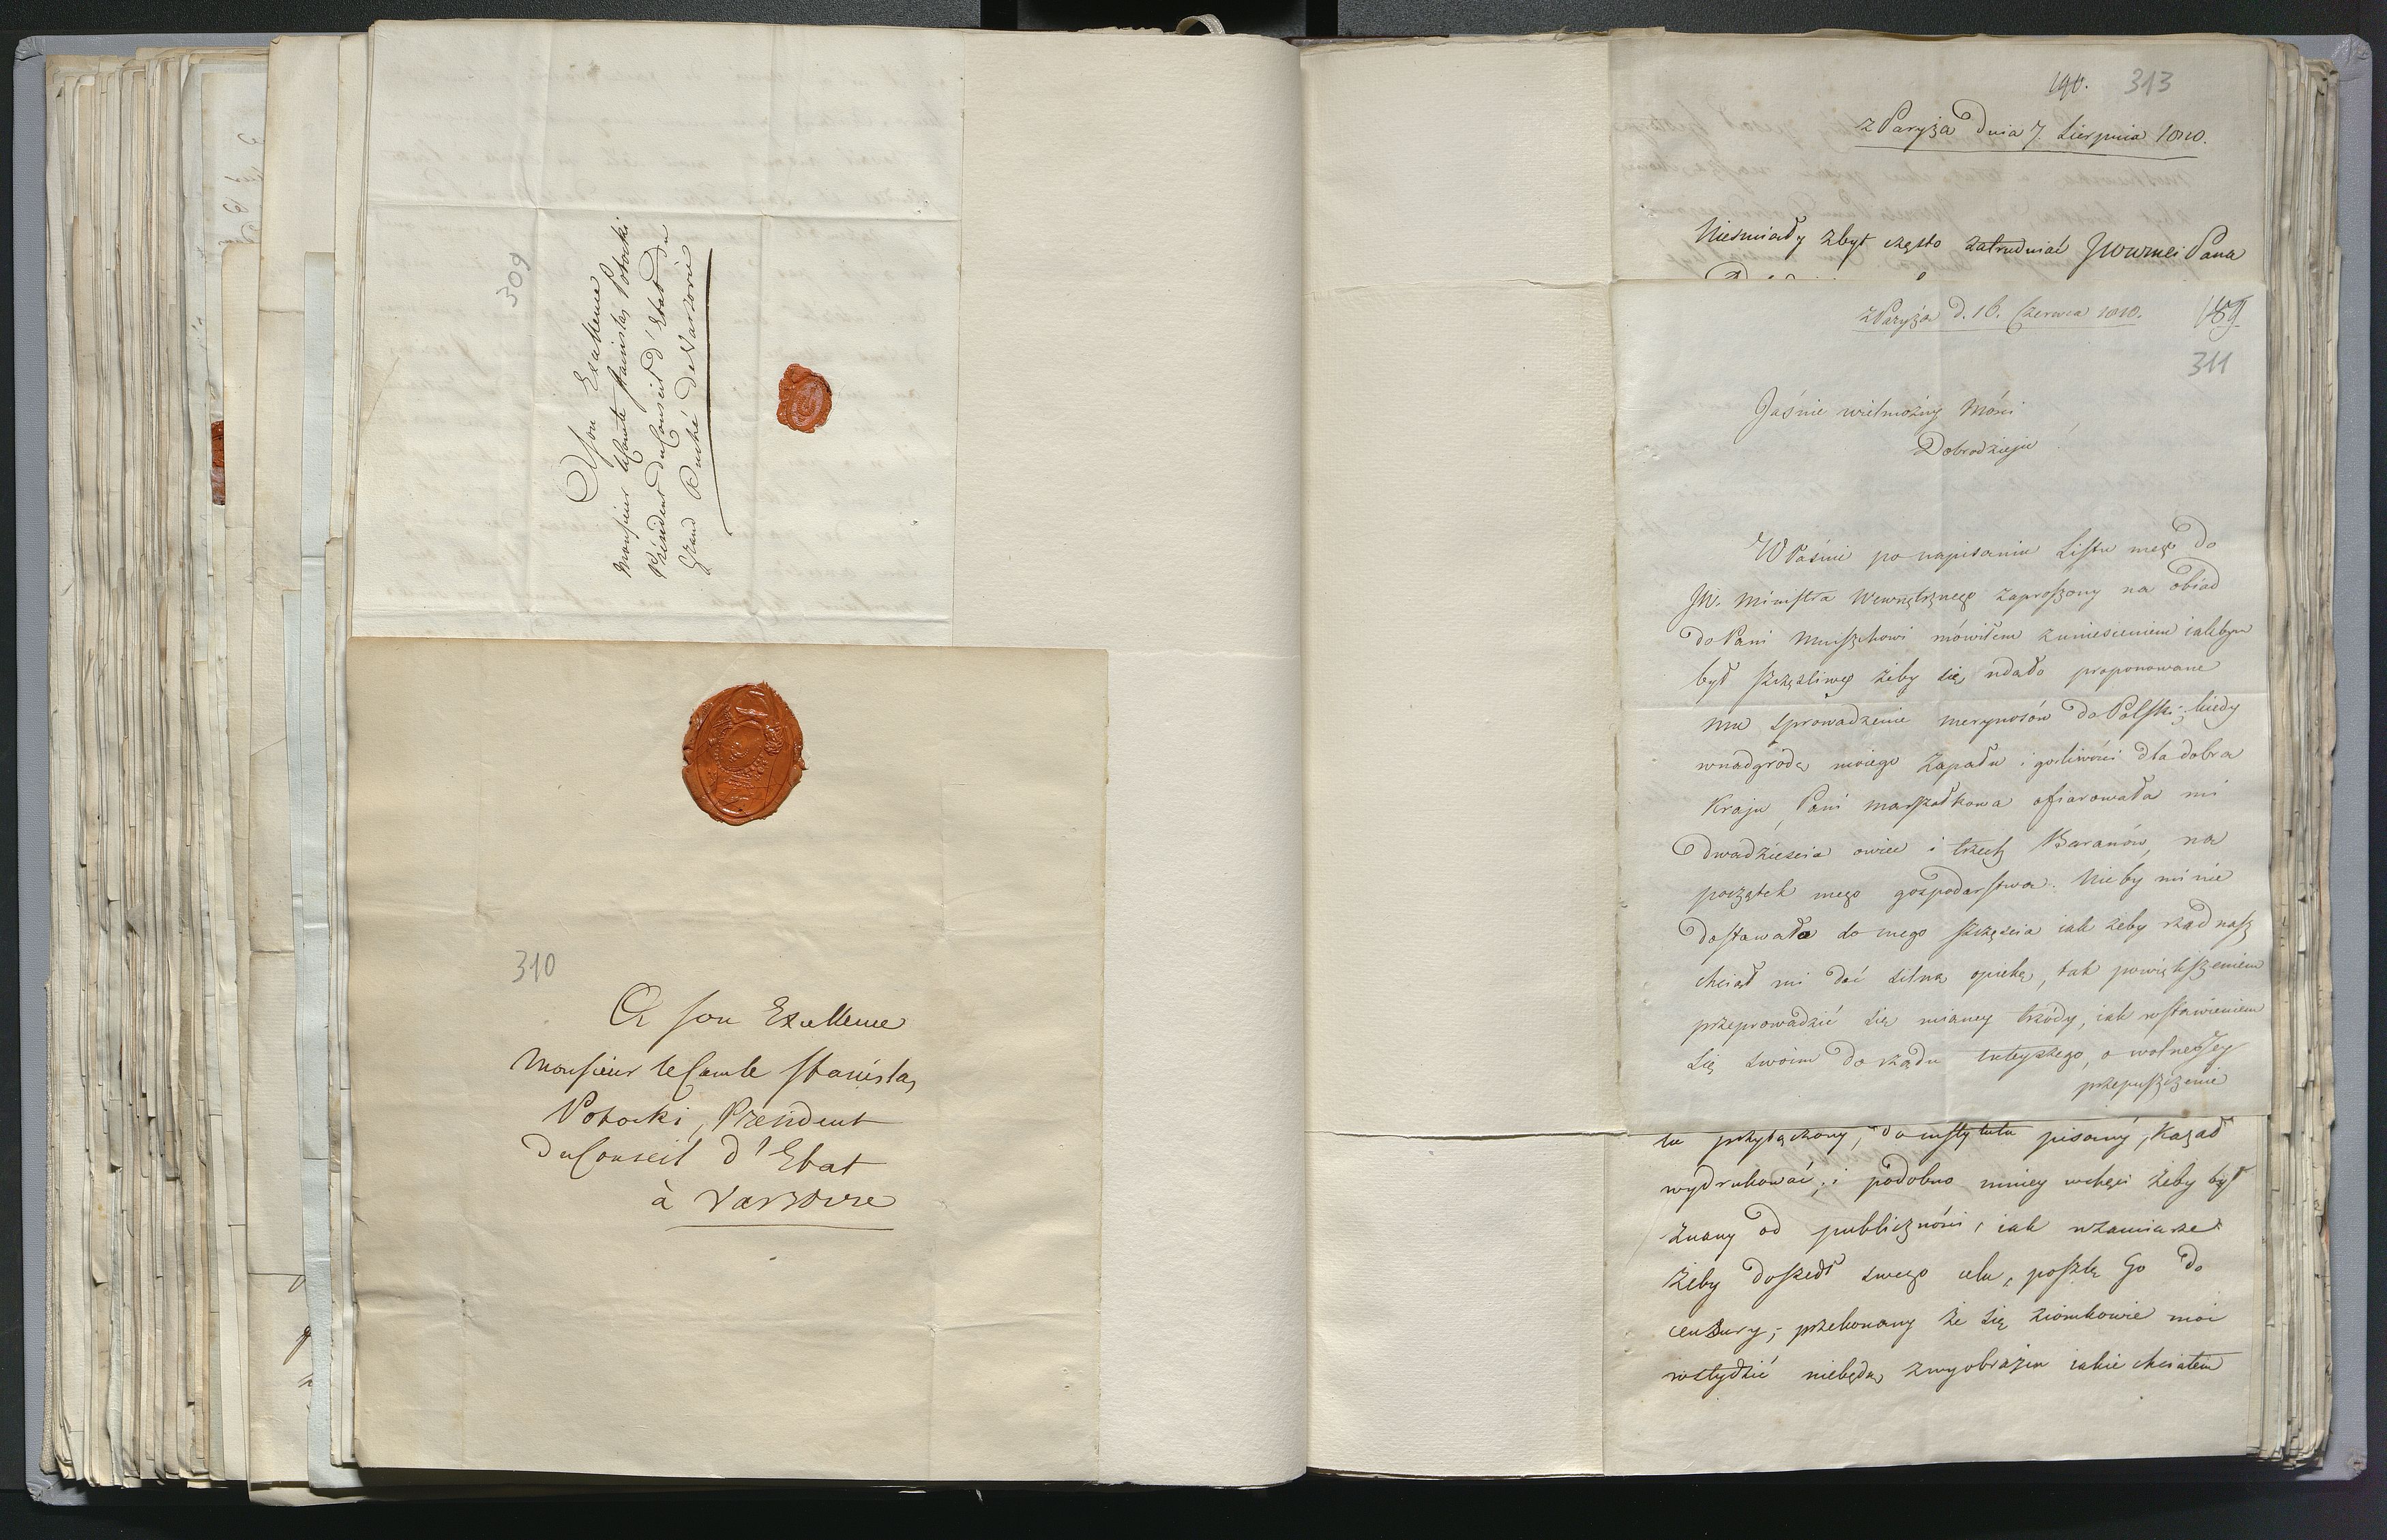 309
A Son Exellence
Monsieur le Comte Stanislas Potocki
Président du Conseil d'Etat du
Grand Duché de Varsovie
310
A son Exellence
Monsieur le Comte Stanislas
Potocki, Président
du Conseil d'Etat
à Varsovie
190. 313
z Paryża Dnia 7. Sierpnia 1810.
Nieśmiały zbyt często zatrudniać JWurnei Pana
z Paryża d. 16. Czerwca 1810. 189
311
Jaśnie wielmożny Mości
Dobrodzieju!
Właśnie po napisaniu Listu mego do
JW. Ministra Wewnętrznego zaproszony na obiad
do Pani mówiłem z uniesieniem iakbym
był szczęśliwy żeby się udało proponowane
mu sprowadzenie merynosów do Polski; kiedy
wnadgrodę moiego zapału i gorliwości dla dobra
Kraju, Pani marszałkowa ofiarowała mi
dwadzieścia owiec i trzech Baranów, na
początek mego gospodarstwa. Nie by mi nie
dostawało do mego szczęścia iak żeby rząd nasz
chciał mi dać silną opiekę, tak powiększeniem
przeprowadzić się mianey trzódy, iak wstawieniem
się swoim do rządu tuteyszego, o wolne
przepuszczenie
tu przyłączony, do instytutu pisany, kazał
wydrukować; i podobno mniey wchęci żeby był
znany od publiczności, iak wzamiarze
żeby doszedł swego celu, poszlę Go do
cenzury; przekonany że się ziomkowie moi
wstydzić niebędą zwyobrażen iakie chciałem